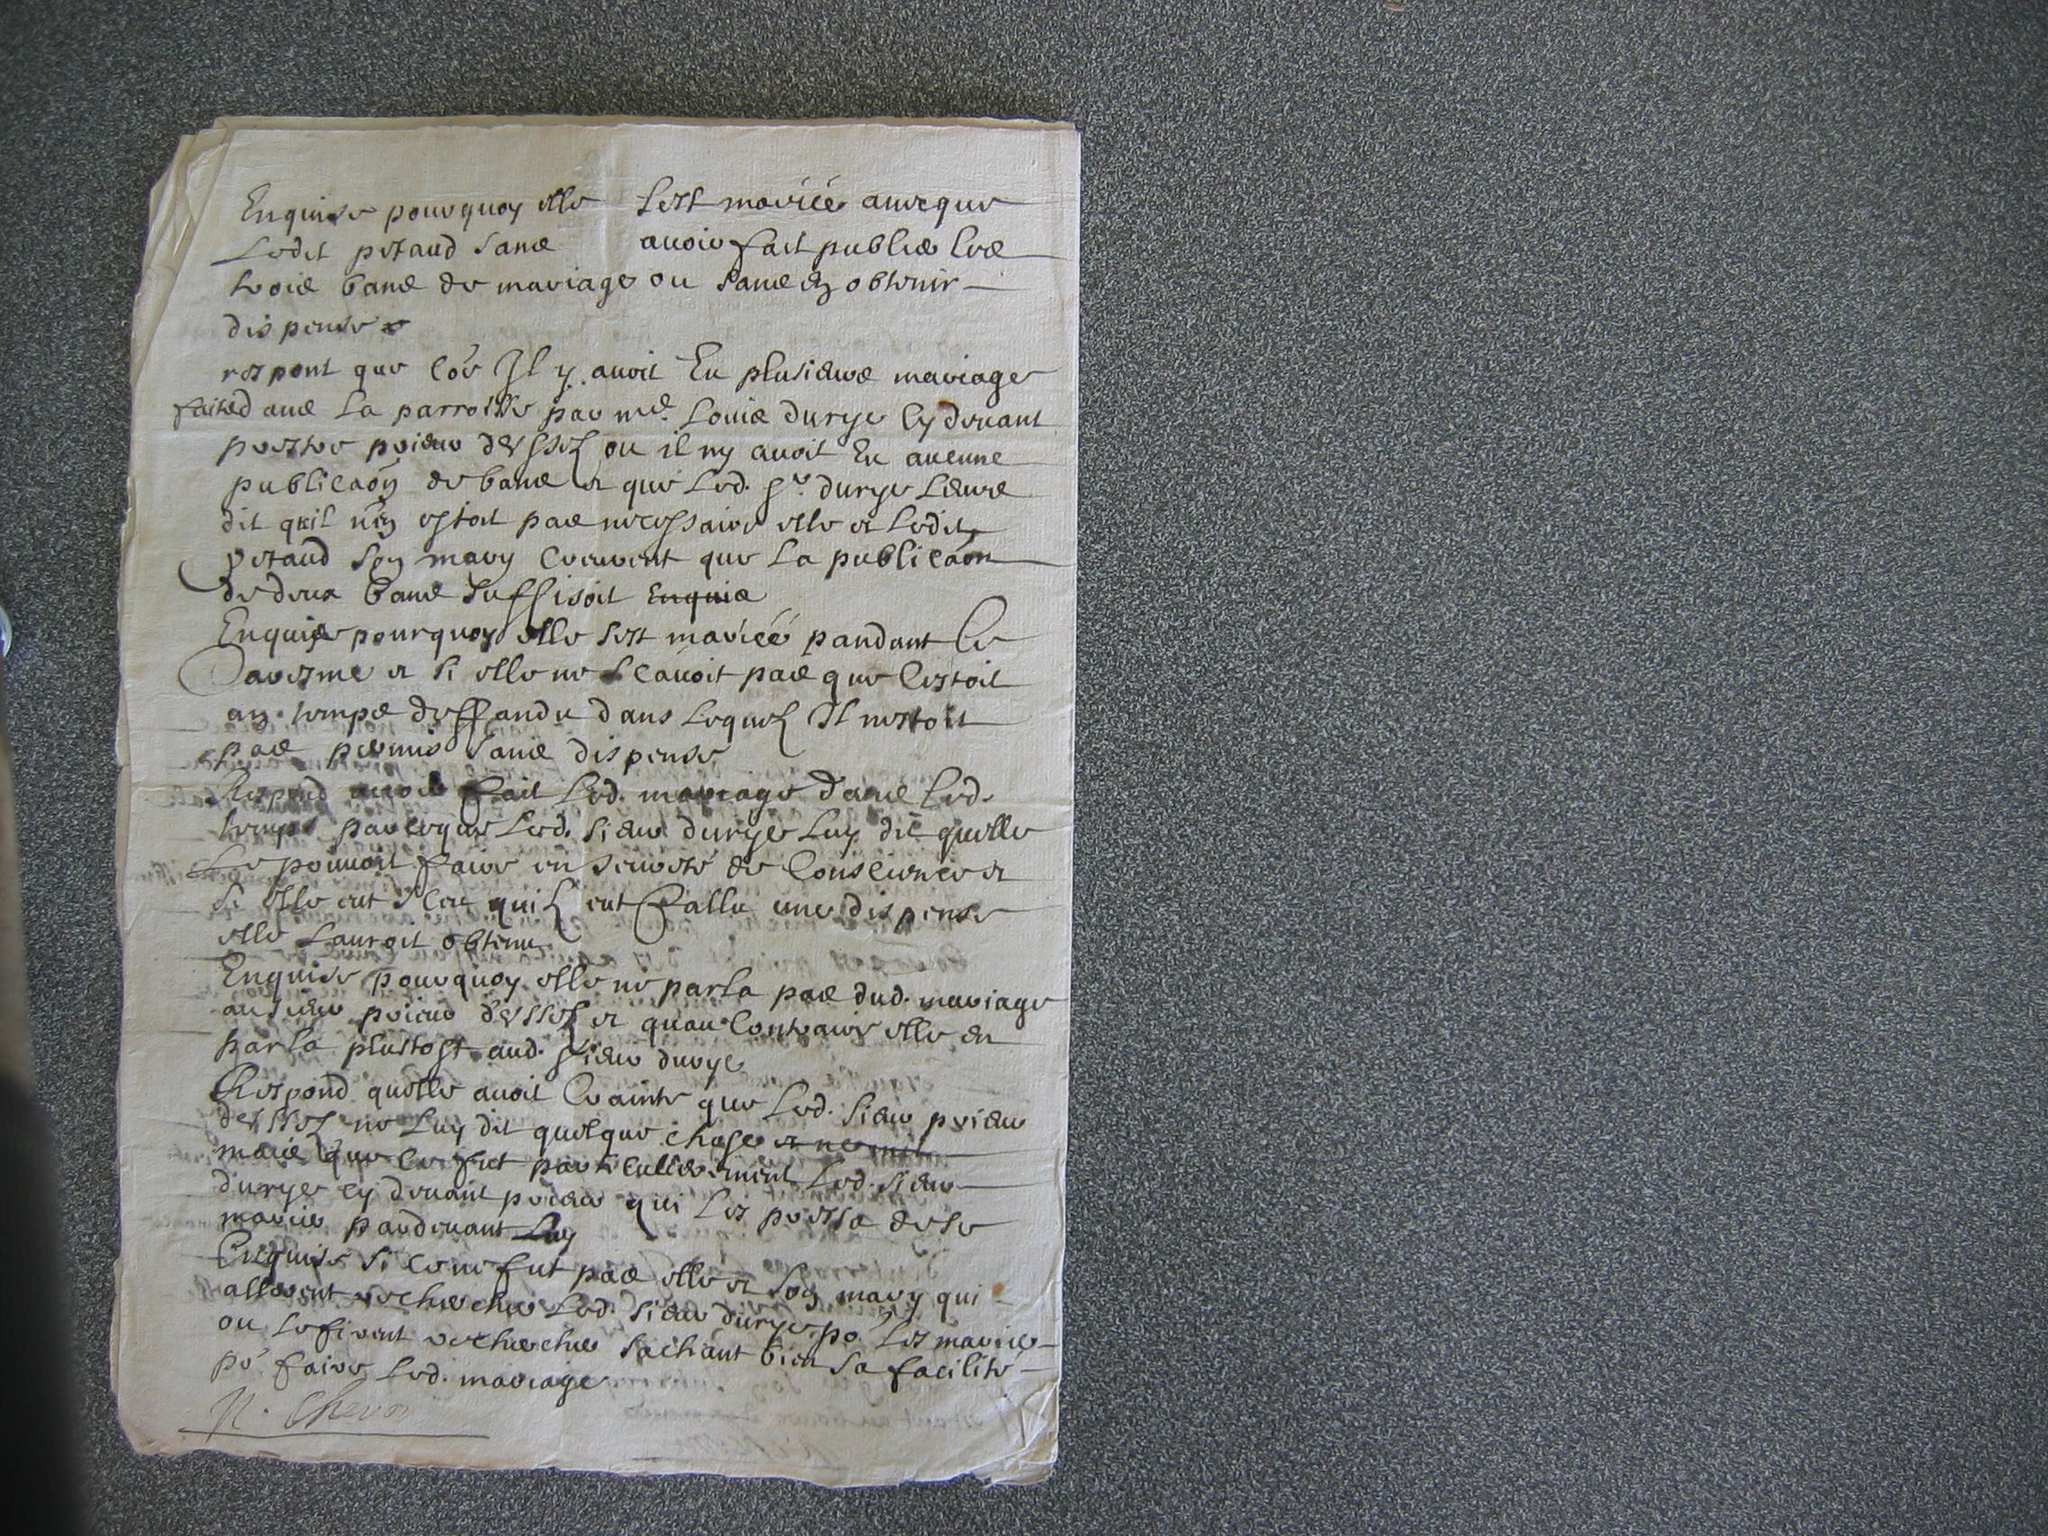 Enquise pourquoy elle sest mariée avecque
Ledit petaud sans avoir fait publier les
trois bans de mariage ou sans en obtenir
dispense
respont que côe Il y avoit Eu plusieurs mariages
faits dans La parroisse par me. Louis durye cy devant
prestre prieur dessez ou il ny avoit Eu aucune
publicaôn de bans et que Led. sr. durye Leurs
dit quil nen estoit pas necessaire elle et Ledit
petaud son mary creurent que La publicaôn
de deux bans suffisoit Enquis
Enquise pourquoy elle sest mariéé pandant Le
Caresme et si elle ne scavoit pas que cestoit
un temps deffandu dans Lequel Il nestoit
pas permis sans dispense
Respond avoir fait Led. mariage dans Led.
temps parceque Led. sieur durye Luy dit quelle
Le pouvoit faire en seureté de conscience et
si elle eut sceu quil eut fallu une dispense
elle Lauroit obtenu
Enquise pourquoy elle ne parla pas dud. mariage
au sieur prieur dessez et quau contraire elle en
parla plustost aud. sieur durye
Respond quelle avoit crainte que Led. sieur prieur
dessez ne Luy dit quelque chose et ne mit
mais que ce fut particullierement Led. sieur
durye cy devant prieur qui Les pressa de se
marier pardevant Luy
Enquise si ce ne fut pas elle et son mary qui
allerent rechercher Led. sieur durye po. Les marier
ou Le firent rechercher sachant bien sa facilité
pr faire Led. mariage
N. Cheron